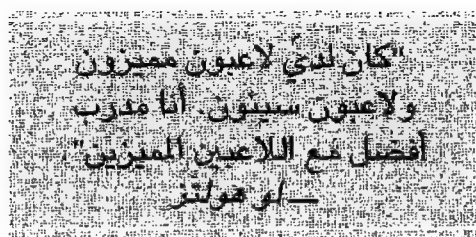 "كان لديّ لاعبون مميزون
ولاعبون سيئون. أنا مدرب
أفضل مع اللاعبين المميزين".
—لو هولتز